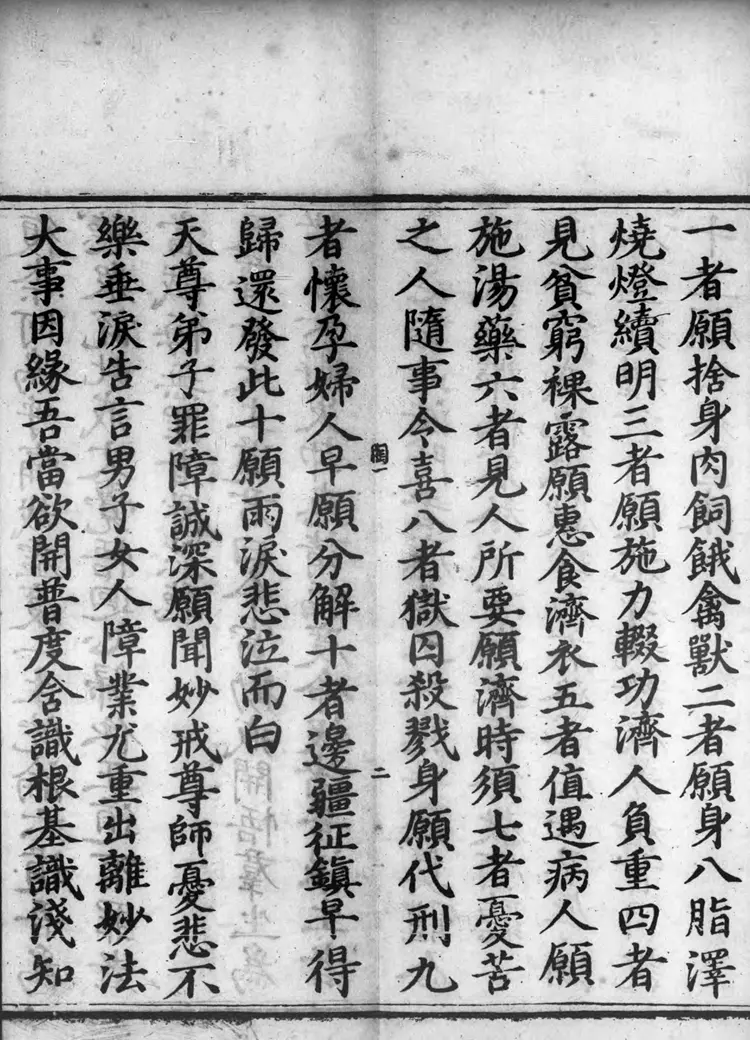 一者願捨身肉飼餓禽獸二者願身八脂澤
燒燈續明三者願施力輟功濟人負重四者
見貧窮裸露願惠食濟衣五者值遇病人願
施湯藥六者見人所要願濟時須七者憂苦
之人隨事令喜八者獄囚殺戮身願代刑九
二
者懷孕婦人早願分解十者邊疆征鎮早得
歸還發此十願雨淚悲泣而白
天尊弟子罪障誠深願聞妙戒尊師憂悲不
樂垂淚告言男子女人障業尤重出離妙法
大事因緣吾當欲開普度含識根基識淺知